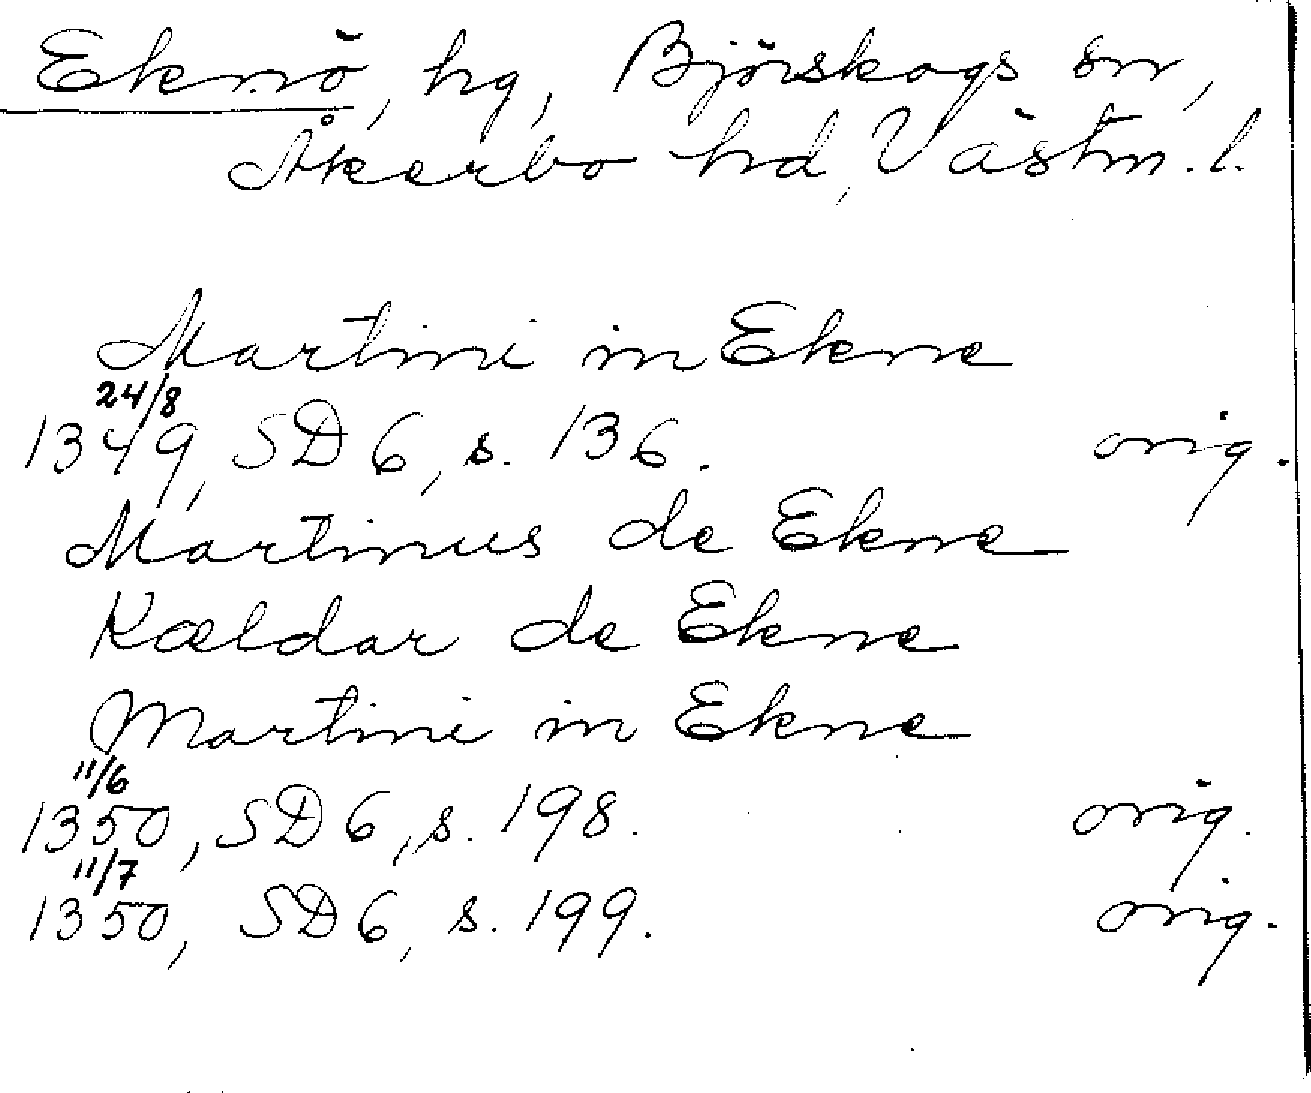 Eknö, hg, Björskogs sn,
Åkerbo hd, Västm. l.
Martini in Ekne
24/8
1349, SD 6, s. 136. orig.
Martinus de Ekne
Kældar de Ekne
Martini in Ekne
11/6
1350, SD 6, s. 198. orig.
11/7
1350, SD 6, s. 199. orig.